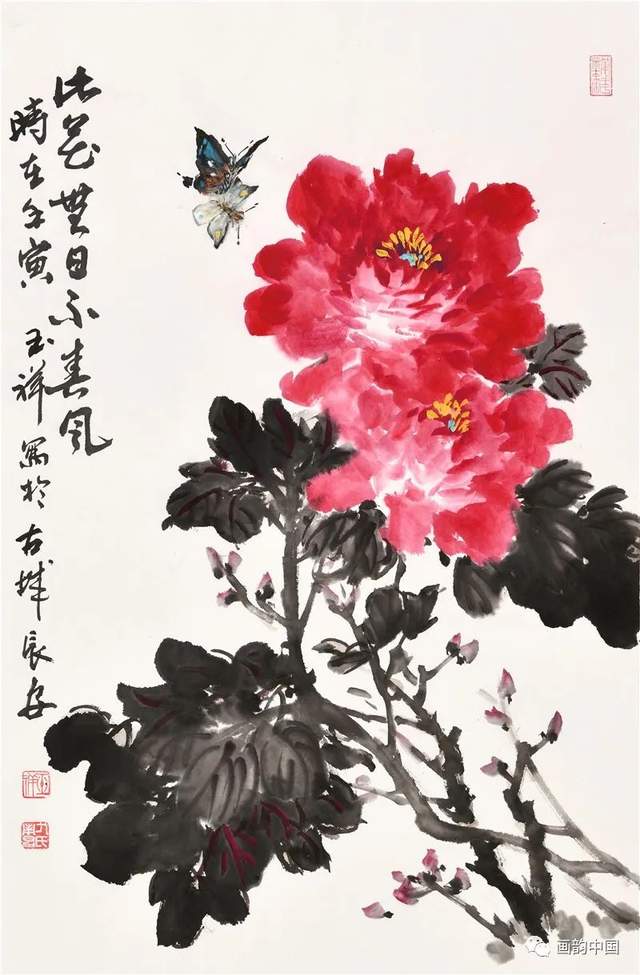 此花無日不春風
時在壬寅 玉祥寫於古城長安
画韵中国